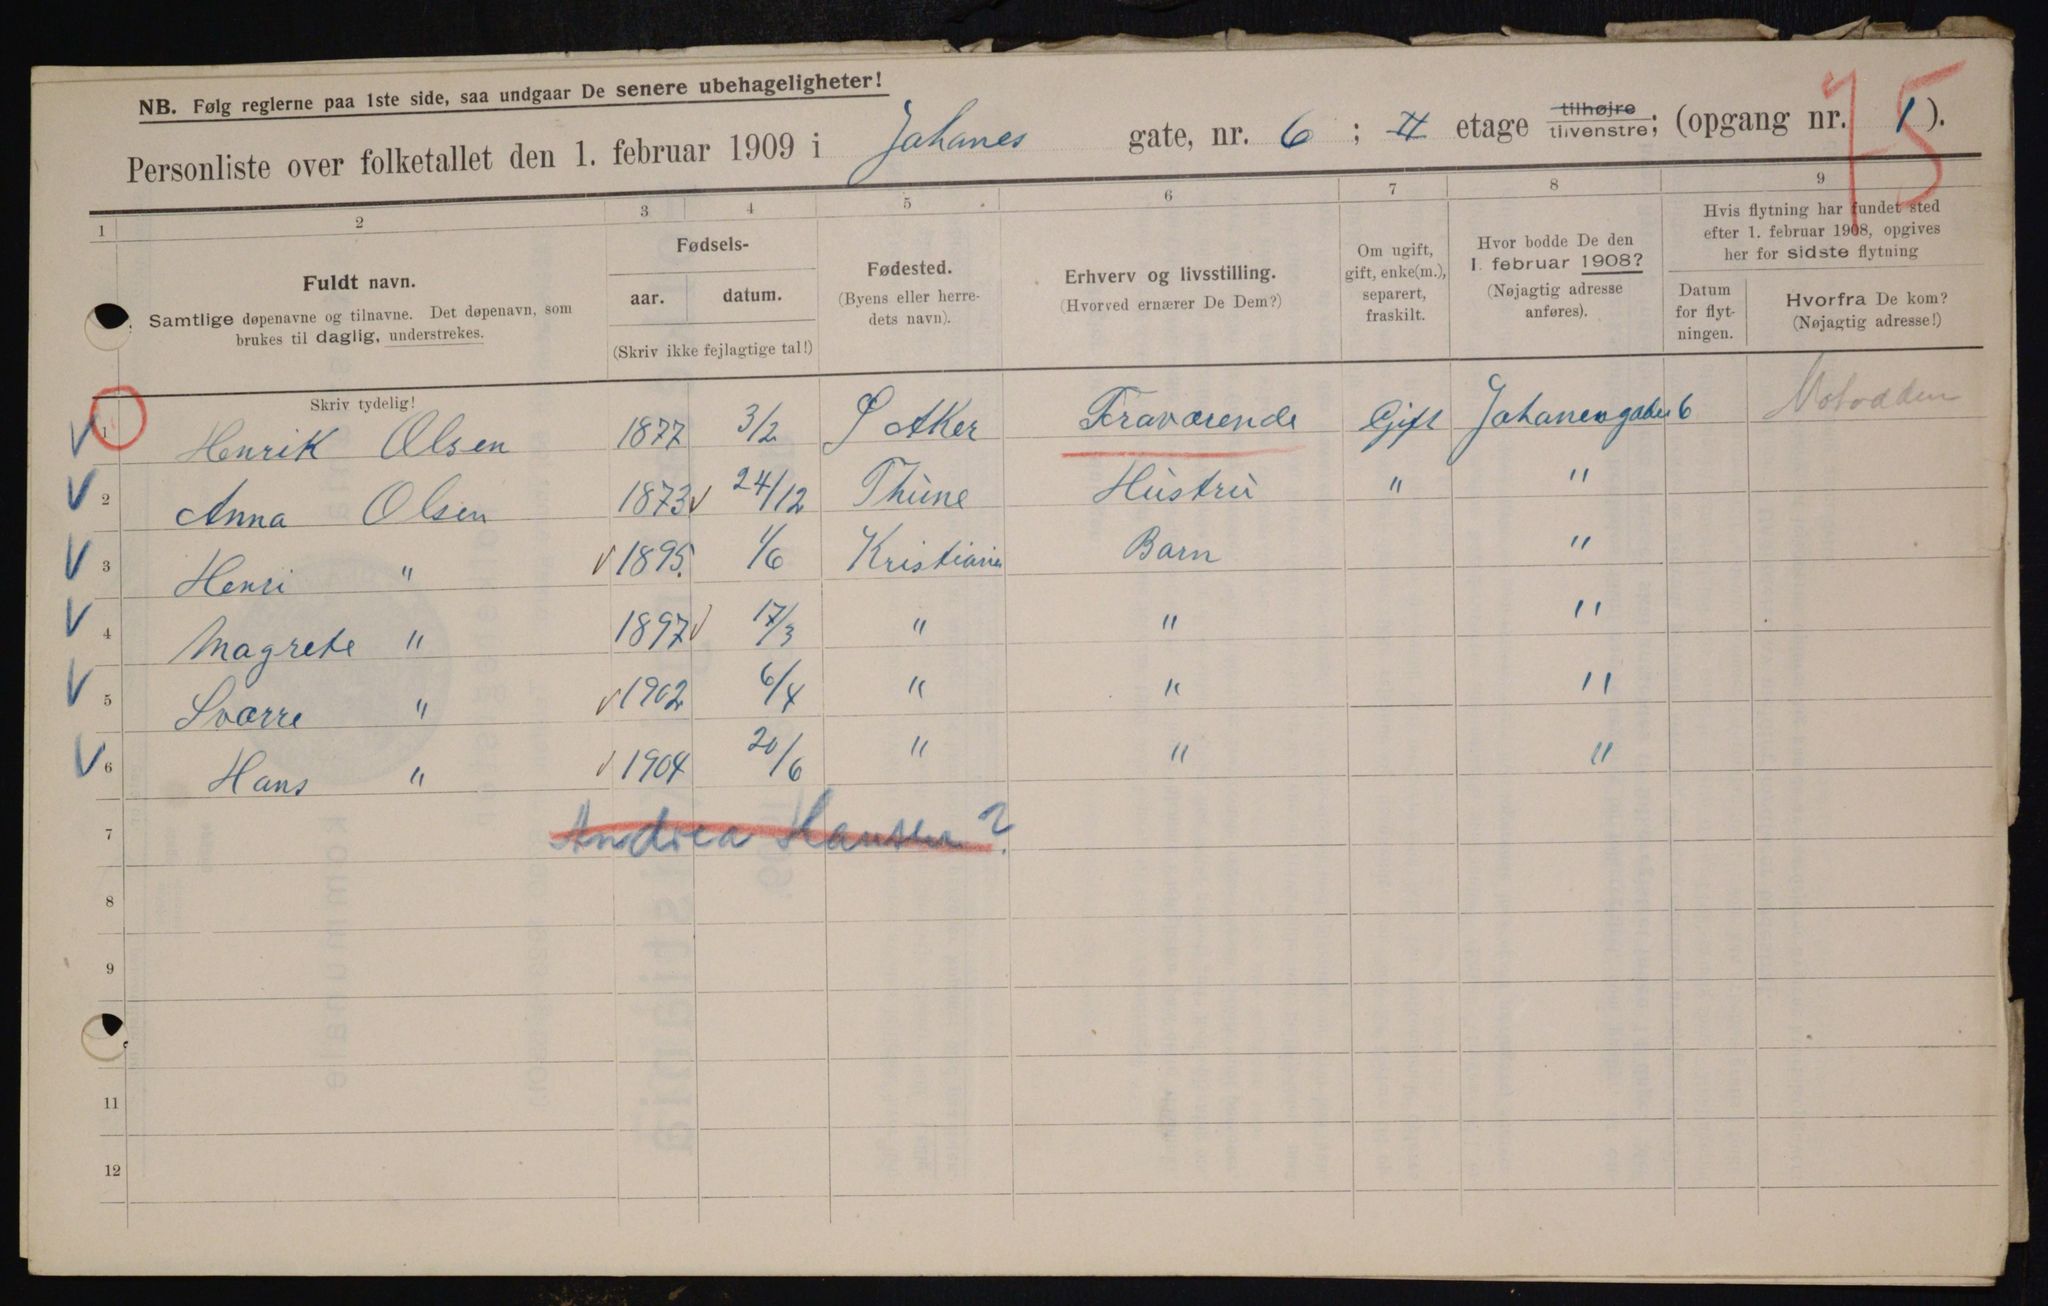 NB. Følg reglerne paa 1ste side, saa undgaar De senere ubehageligheter!
Personliste over folketallet den 1. februar 1909 i Johanes gate, nr. 6 ; II etage tilhøjre tilvenstre; (opgang nr. 1 ).
75
1 2 3 4 5 6 7 8 9
Fuldt navn.
Samtlige døpenavne og tilnavne. Det døpenavn, som
brukes til daglig, understrekes.
Fødsels-
aar. datum.
(Skriv ikke fejlagtige tal!)
Fødested.
(Byens eller herre-
dets navn).
Erhverv og livsstilling.
(Hvorved ernærer De Dem?)
Om ugift,
gift, enke(m.),
separert,
fraskilt.
Hvor bodde De den
1. februar 1908?
(Nøjagtig adresse
anføres).
Hvis flytning har fundet sted
efter 1. februar 1908, opgives
her for sidste flytning
Datum
for flyt-
ningen.
Hvorfra De kom?
(Nøjagtig adresse!)
Skriv tydelig!
1 Henrik Olsen 1877 3/2 Ø Aker Fraværende Gift Johanesgaten 6 Notodden
2 Anna Olsen 1873 24/12 Thüne Hüstrü " "
3 Henri " 1895. 1/6 Kristiania Barn "
4 Magrete " 1897 17/3 " " "
5 Sværre " 1902 6/4 " " "
6 Hans " 1904 20/6 " " "
7 Andrea Hansen ?
8
9
11
12